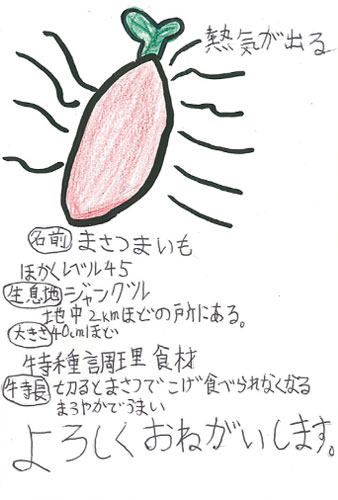 熱気が出る
名前 まさつまいも
ほかくレベル45
生息地 ジャングル
地中2kmほどの所にある。
大きさ 40cmほど
特種調理食材
特長 切るとまさつでこげ食べられなくなる
まろやかでうまい
よろしくおねがいします。